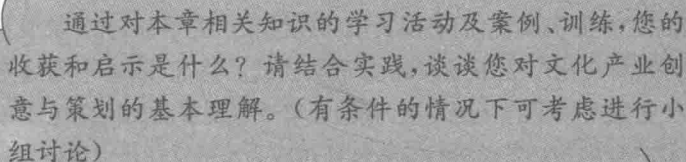 通过对本章相关知识的学习活动及案例、训练,您的
收获和启示是什么?请结合实践,谈谈您对文化产业创
意与策划的基本理解。(有条件的情况下可考虑进行小
组讨论)